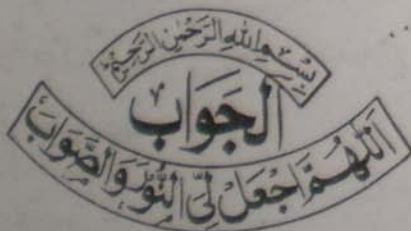 بِسْمِ اللهِ الرَّحْمٰنِ الرَّحِيْمِ
اَلجَوَابُ
اَللّٰهُمَّ اجْعَلْ لِّیَ النُّوْرَ وَالصَّوَابَ